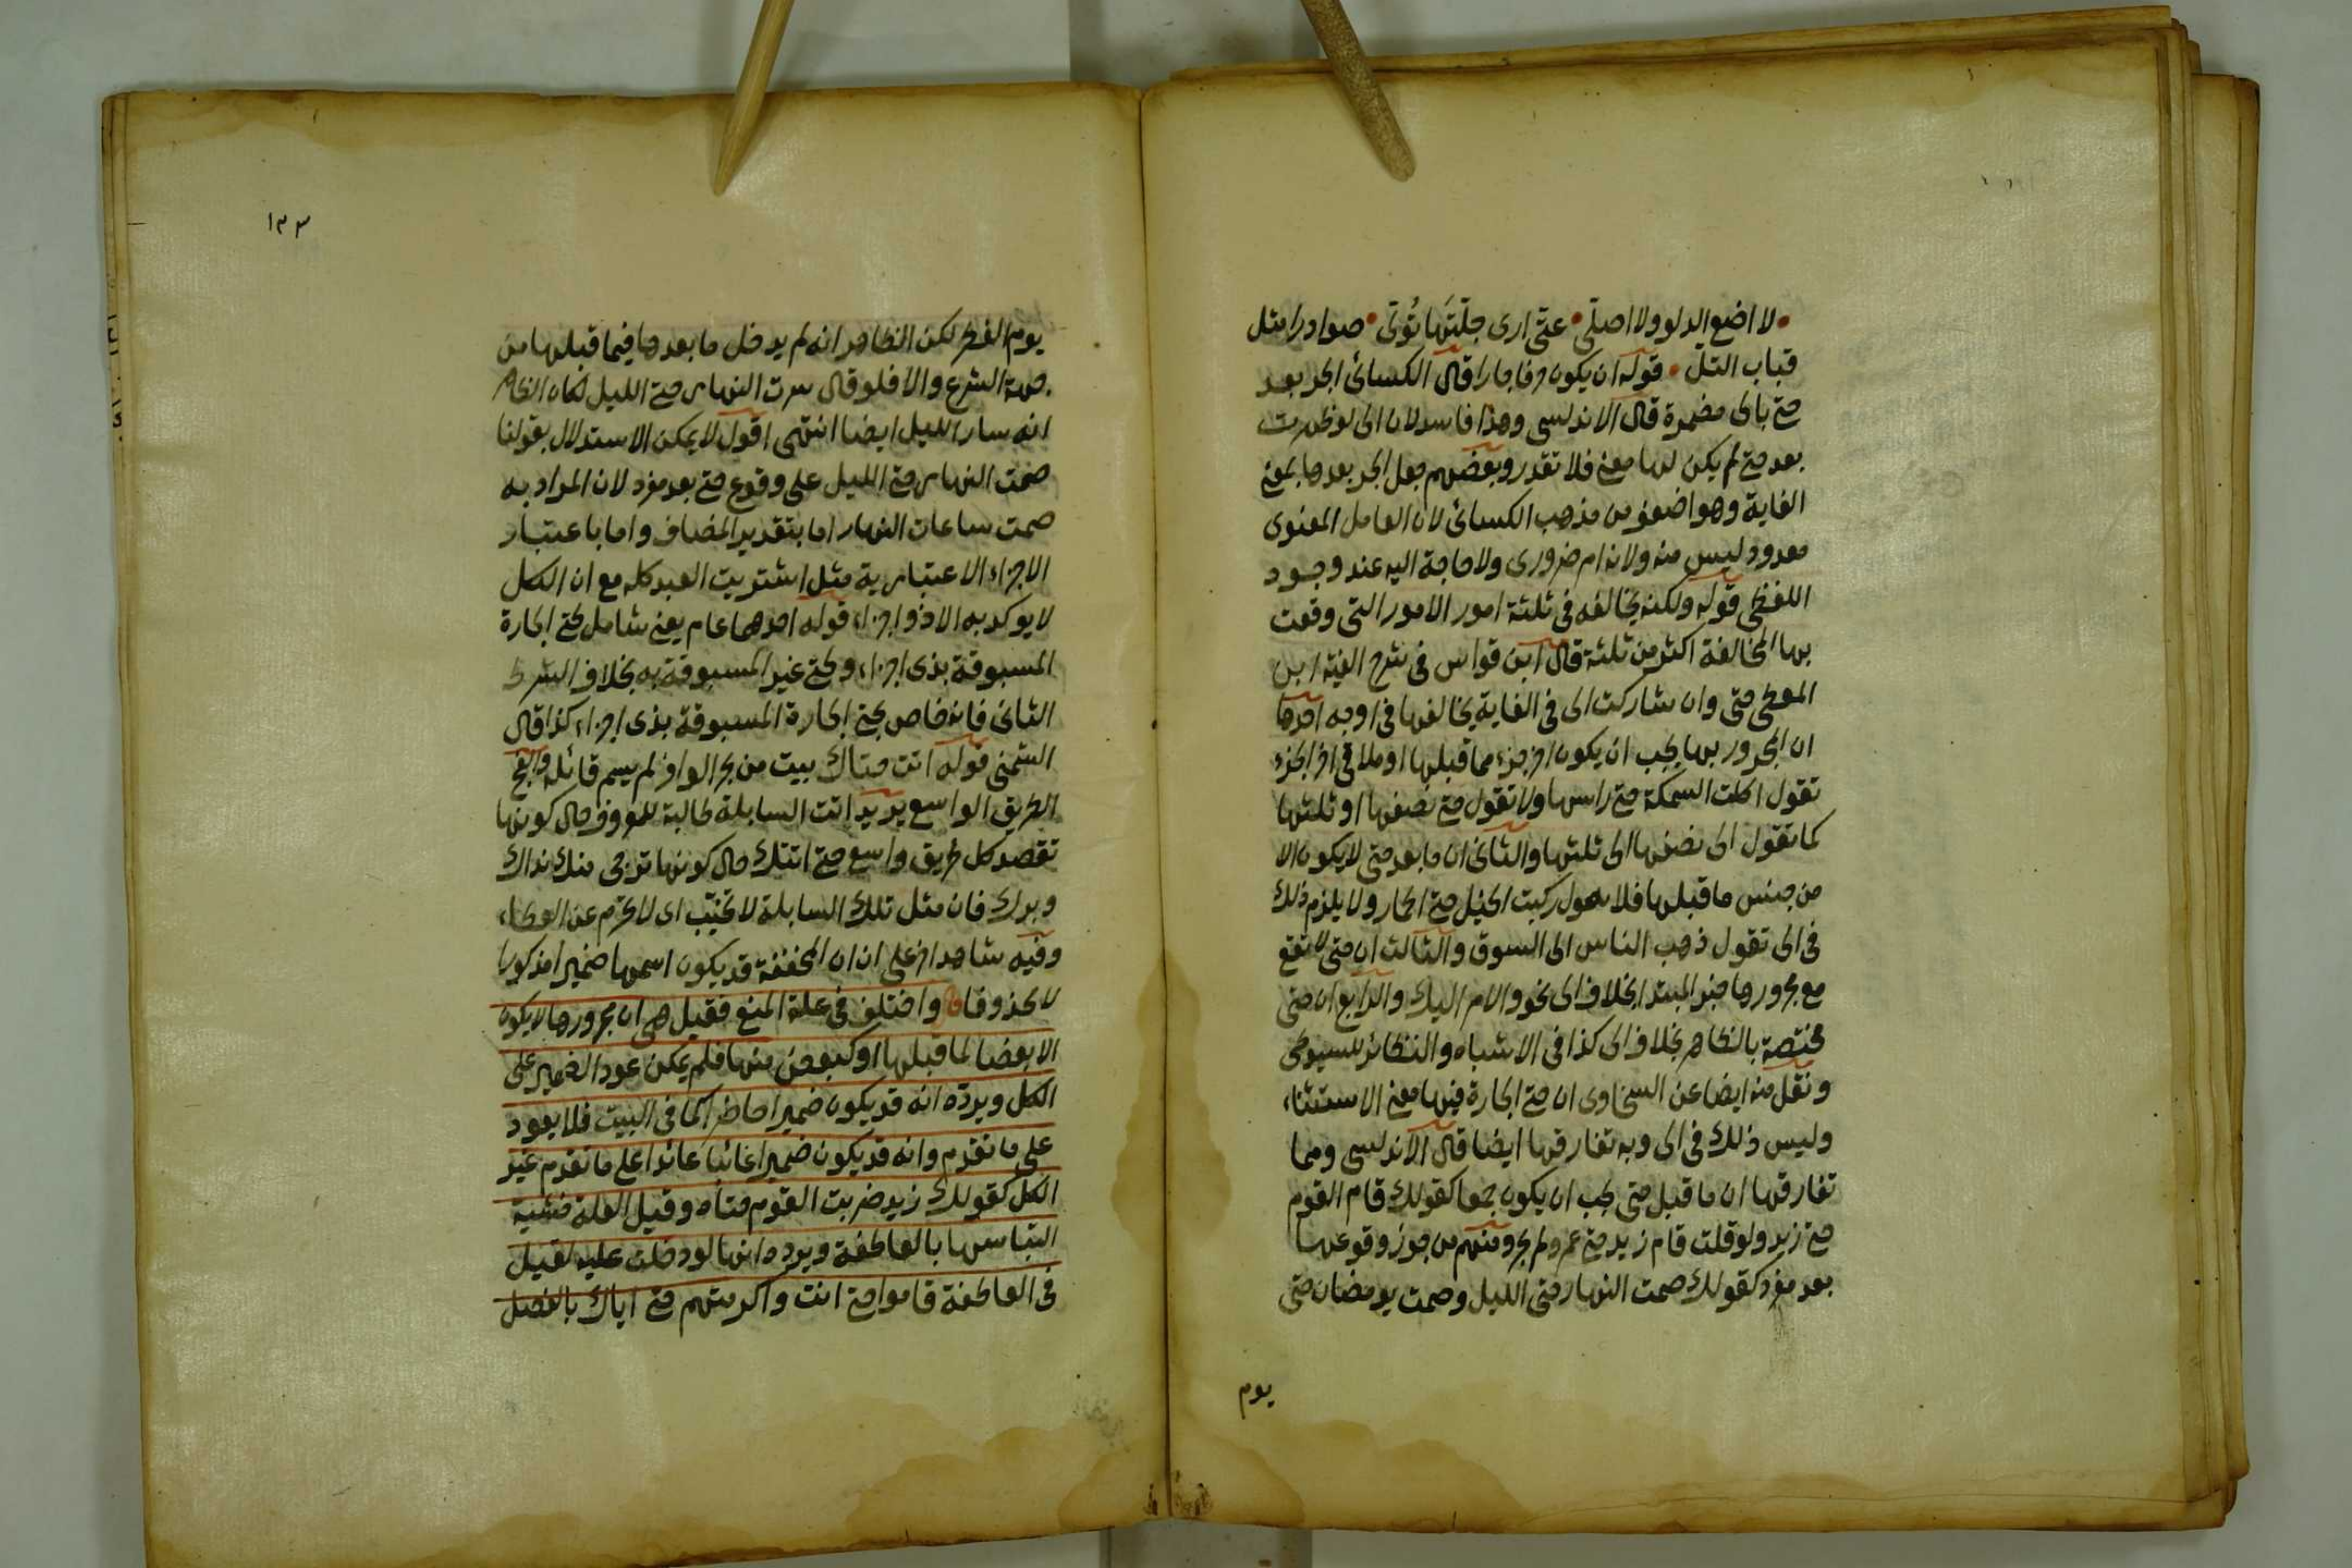 لا اضع الدلو ولا اصلى • حتى ارى جلتها تولى • صوادرا مثل
قباب التل • قوله ان يكون حرفا جارا قال الكسائى الجر بعد
حتى بالى مضمرة قال الاندلسى وهذا فاسد لان الى لو ظهرت
بعد حتى لم يكن لها معنى فلا تقدر وبعضهم جعل الجر بعدها بمعنى
الغاية وهو اضعف من مذهب الكسائى لان العامل المعنوى
معدود ليس منه ولانه امر ضرورى ولا حاجة اليه عند وجود
اللفظى قوله ولكنه يخالفه فى ثلثة امور الامور التى وقعت
بها المخالفة اكثر من ثلثة قال ابن قواس فى شرح الفية ابن
المعطى حتى وان شاركت الى فى الغاية يخالفها فى اوجه احدها
ان المجرور بها يجب ان يكون اخر جزء مما قبلها او ملاقى اخر الجزء
تقول اكلت السمكة حتى راسها ولا تقول حتى نصفها او ثلثها
كما تقول الى نصفها الى ثلثها والثانى ان ما بعد حتى لا يكون الا
من جنس ما قبلها فلا تقول ركبت الخيل حتى الحمار ولا يلزم ذلك
فى الى تقول ذهب الناس الى السوق والثالث ان حتى لا تقع
مع مجرورها خبر المبتدا بخلاف الى نحو والامر اليك والرابع ان حتى
مختصة بالظاهر بخلاف الى كذا فى الاشباه والنظائر للسيوطى
ونقل منه ايضا عن السخاوى ان حتى الجارة فيها معنى الاستثناء
وليس ذلك فى الى وبه تفارقها ايضا قال الاندلسى ومما
تفارقها ان ما قبل حتى يجب ان يكون جمعا كقولك قام القوم
حتى زيد ولو قلت قام زيد حتى عمرو لم يجز ومنهم من جوز وقوعها
بعد مفرد كقولك صمت النهار حتى الليل وصمت رمضان حتى
يوم
١٣٣
يوم الفطر لكن الظاهر انه لم يدخل ما بعدها فيما قبلها من
جهة الشرع والا فلو قال سرت النهار حتى الليل لكان الظاهر
انه سار الليل ايضا انتهى اقول لا يمكن الاستدلال بقولنا
صمت النهار حتى الليل على وقوع حتى بعد مفرد لان المراد به
صمت ساعات النهار اما بتقدير المضاف واما باعتبار
الاجزاء الاعتبارية مثل اشتريت العبد كله مع ان الكل
لا يوكد به الا ذو اجزاء قوله احدهما عام يعنى شامل لحتى الجارة
المسبوقة بذى اجزاء ولحتى غير المسبوقة به بخلاف الشرط
الثانى فانه خاص بحتى الجارة المسبوقة بذى اجزاء كذا قال
الشمنى قوله اتت حتاك بيت من بحر الوافر لم يسم قائله والفج
الطريق الواسع يريد اتت السابلة طالبة للمعروف حال كونها
تقصد كل طريق واسع حتى اتتك حال كونها ترجى منك نداك
وبرك فان مثل تلك السابلة لا تخيب اى لا تحرم عن العطاء
وفيه شاهد اخر على ان ان المخففة قد يكون اسمها ضميرا مذكورا
لا محذوفا واختلف فى علة المنع فقيل هى ان مجرورها لا يكون
الا بعضا لما قبلها او كبعض منها فلم يمكن عود الضمير على
الكل ويرده انه قد يكون ضميرا حاضرا كما فى البيت فلا يعود
على ما تقدم وانه قد يكون ضميرا غائبا عائدا على ما تقدم غير
الكل كقولك زيد ضربت القوم حتاه وقيل العلة خشية
التباسها بالعاطفة ويرده انها لو دخلت عليه لقيل
فى العاطفة قاموا حتى انت واكرمتهم حتى اياك بالفصل